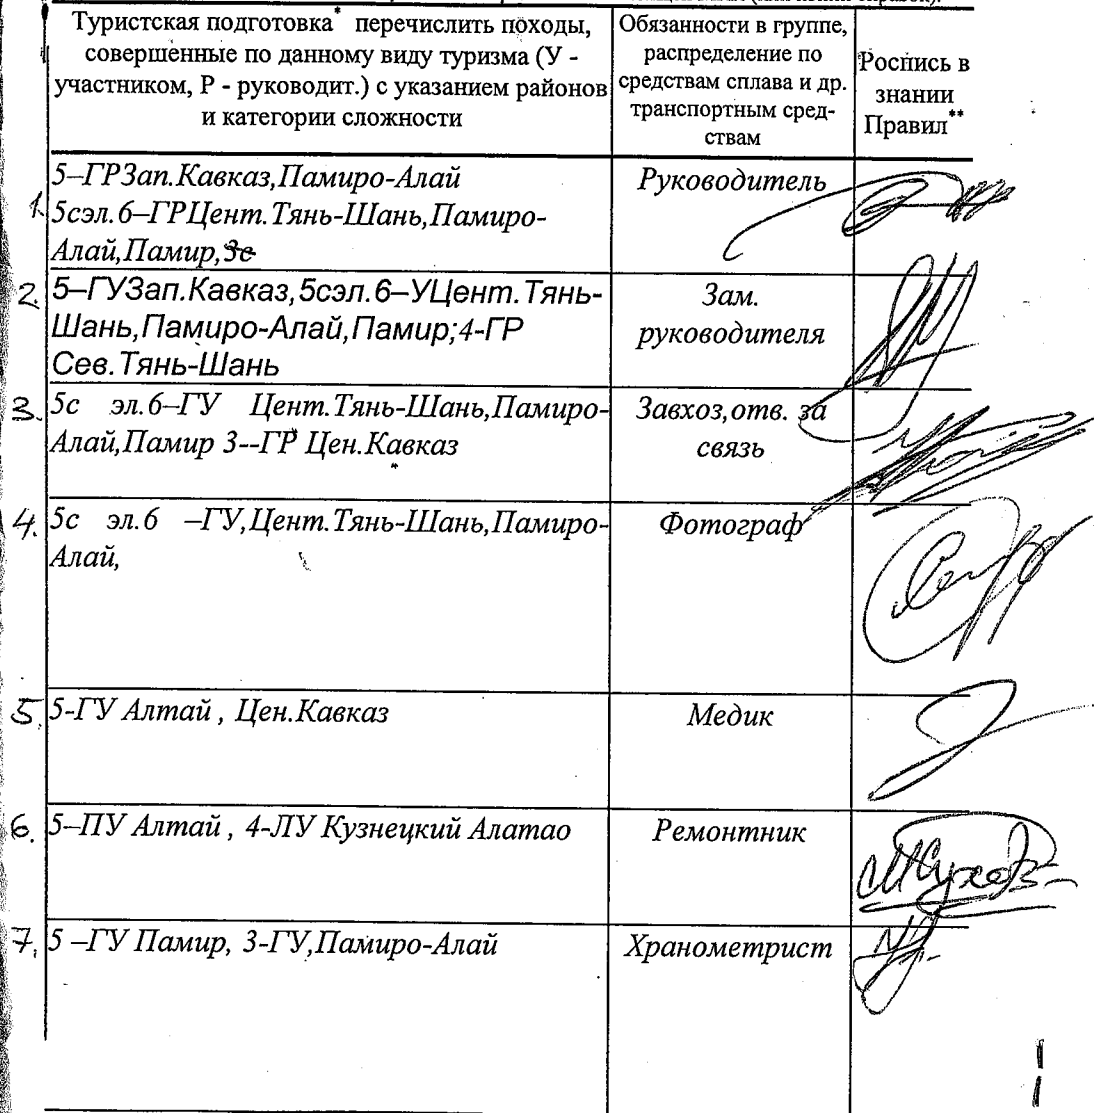 Туристская подготовка* перечислить походы,
совершенные по данному виду туризма (У -
участником, Р - руководит.) с указанием районов
и категории сложности
Обязанности в группе,
распределение по
средствам сплава и др.
транспортным сред-
ствам
Роспись в
знании
Правил**
1.
5–ГРЗап.Кавказ,Памиро-Алай
5сэл.6–ГРЦент.Тянь-Шань,Памиро-
Алай,Памир,3с
Руководитель
2.
5–ГУЗап.Кавказ,5сэл.6–УЦент.Тянь-
Шань,Памиро-Алай,Памир;4-ГР
Сев.Тянь-Шань
Зам.
руководителя
3.
5с эл.6–ГУ Цент.Тянь-Шань,Памиро-
Алай,Памир 3--ГР Цен.Кавказ
Завхоз,отв. за
связь
4.
5с эл.6 –ГУ,Цент.Тянь-Шань,Памиро-
Алай,
Фотограф
5.
5-ГУ Алтай , Цен.Кавказ
Медик
6.
5–ПУ Алтай , 4-ЛУ Кузнецкий Алатао
Ремонтник
7.
5 –ГУ Памир, 3-ГУ,Памиро-Алай
Хранометрист